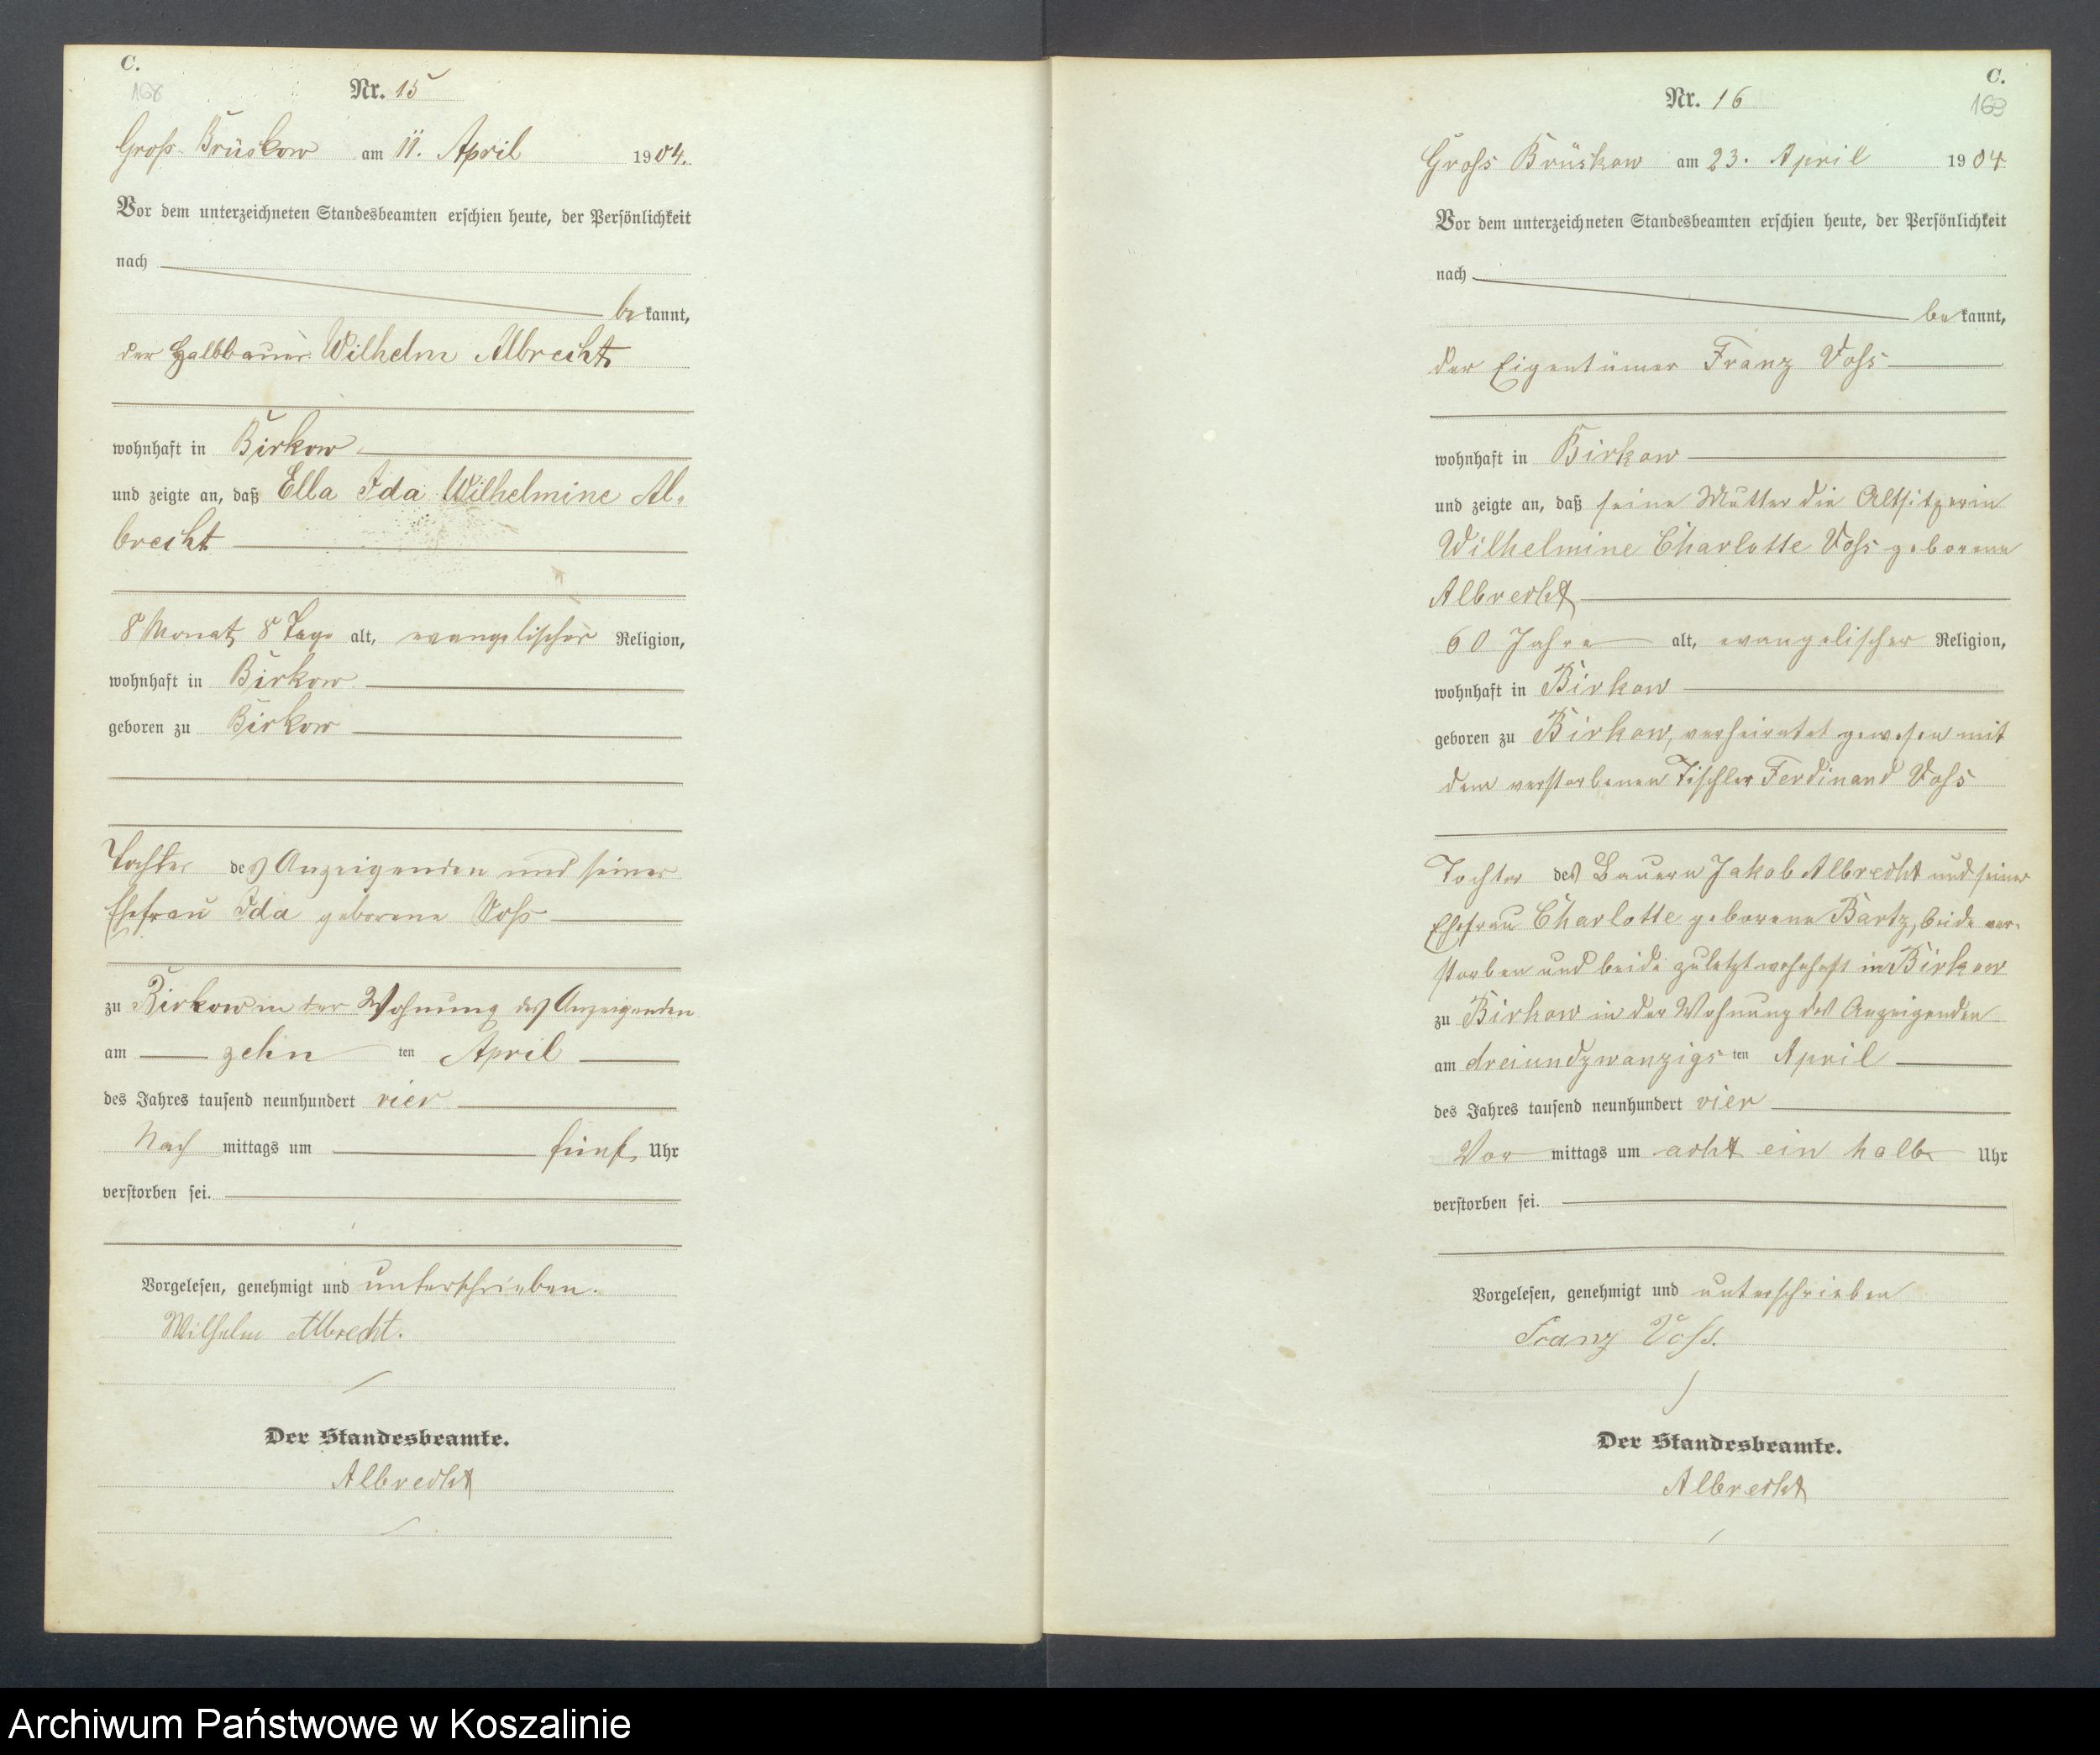 C.
168
Nr. 15
Groß Brüskow am 11. April 1904.
Vor dem unterzeichneten Standesbeamten erschien heute, der Persönlichkeit
nach
bekannt,
der Halbbauer Wilhelm Albrecht
wohnhaft in Birkow
und zeigte an, daß Ella Ida Wilhelmine Al-
brecht
8 Monat, 8 Tage alt, evangelischer Religion,
wohnhaft in Birkow
geboren zu Birkow
Tochter des Anzeigenden und seiner
Ehefrau Ida geborene Voß
zu Birkow in der Wohnung des Anzeigenden
am zehnten April
des Jahres tausend neunhundert vier
Nachmittags um fünf Uhr
verstorben sei.
Vorgelesen, genehmigt und unterschrieben.
Wilhelm Albrecht.
Der Standesbeamte.
Albrecht
C.
169
Nr. 16
Groß Brüskow am 23. April 1904
Vor dem unterzeichneten Standesbeamten erschien heute, der Persönlichkeit
nach
bekannt,
der Eigentümer Franz Voß
wohnhaft in Birkow
und zeigte an, daß seine Mutter die Altsitzerin
Wilhelmine Charlotte Voß geborene
Albrecht
60 Jahre alt, evangelischer Religion,
wohnhaft in Birkow
geboren zu Birkow, verheiratet gewesen mit
dem verstorbenen Tischler Ferdinand Voß
Tochter des Bauern Jakob Albrecht und seiner
Ehefrau Charlotte geborene Bartz, beide ver-
storben und beide zuletzt wohnhaft in Birkow
zu Birkow in der Wohnung des Anzeigenden
am dreiundzwanzigsten April
des Jahres tausend neunhundert vier
Vormittags um acht ein halb Uhr
verstorben sei.
Vorgelesen, genehmigt und unterschrieben
Franz Voß.
Der Standesbeamte.
Albrecht
Archiwum Państwowe w Koszalinie